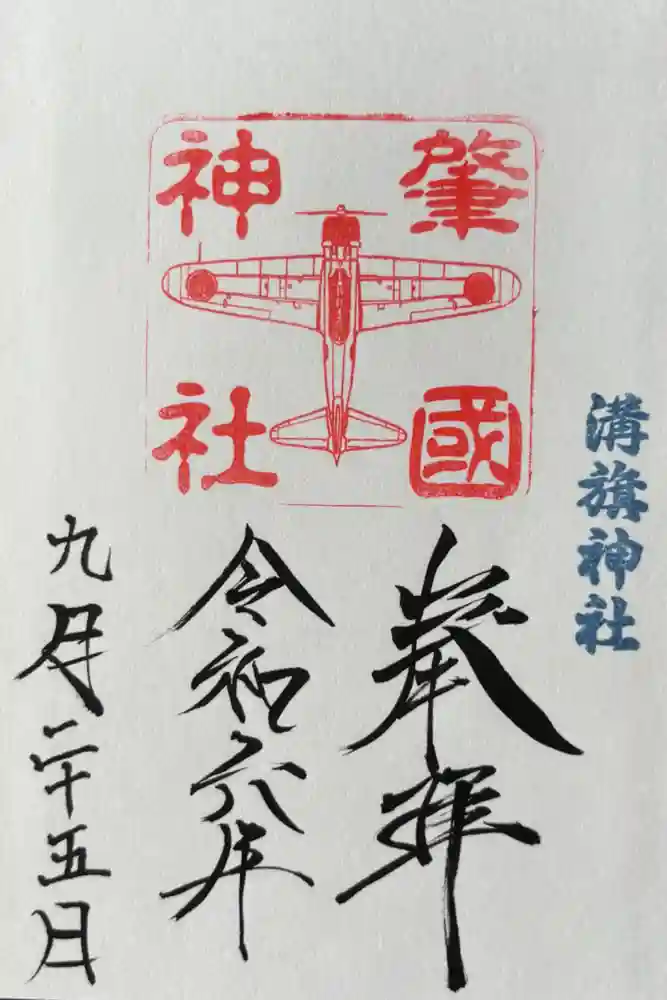 溝旗神社
肇國
神社
奉拝
令和六年
九月二十五日